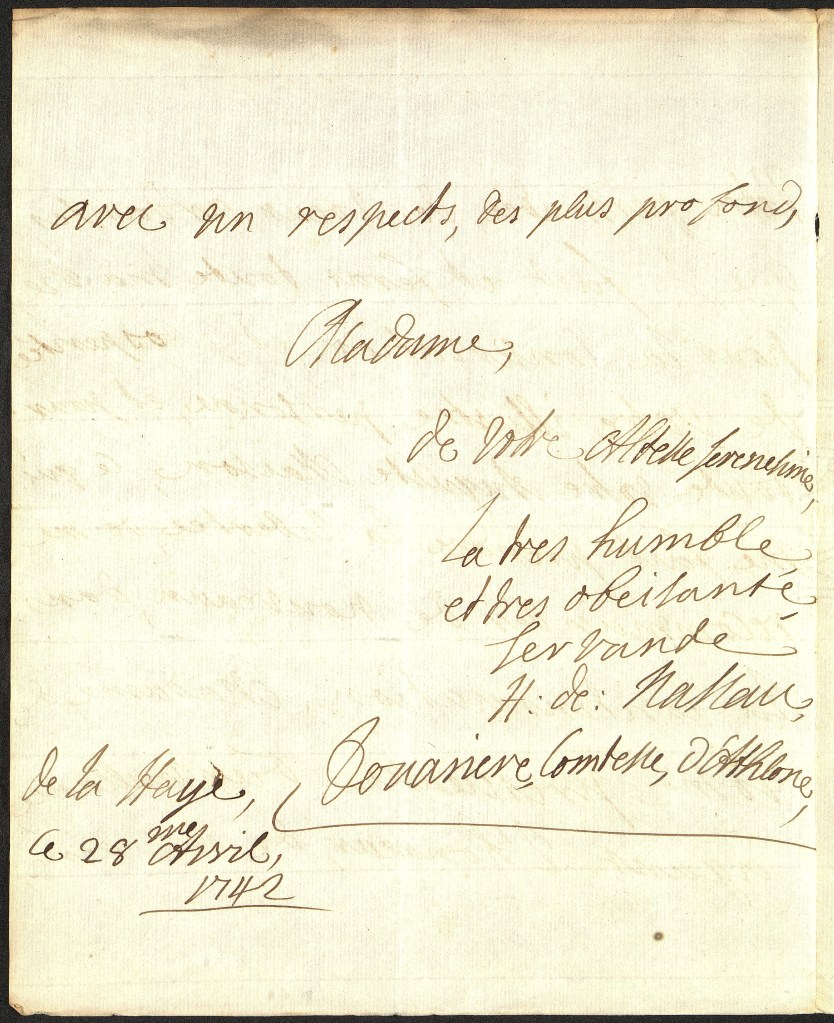 avec un respects, des plus profond,
Madame,
de Votre Altesse Serenesime,
La tres humble,
et tres obeisante,
Servande
H: de: Nassau,
Douariere, Comtesse, d'Athlone,
de la Haye,
Ce 28me Avril,
1742